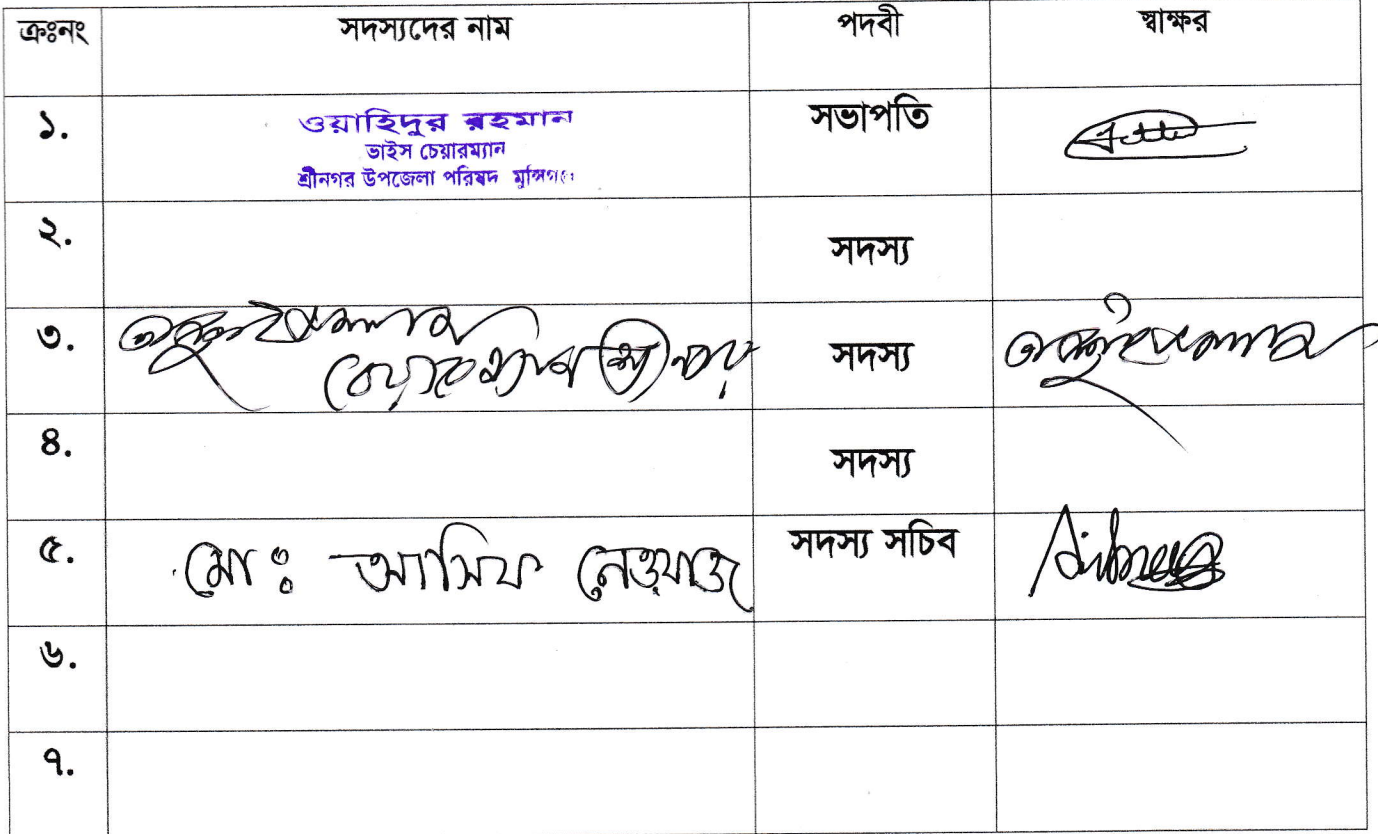 ক্রঃনং সদস্যদের নাম পদবী স্বাক্ষর
১. ওয়াহিদুর রহমান সভাপতি
ভাইস চেয়ারম্যান
শ্রীনগর উপজেলা পরিষদ মুন্সিগঞ্জ
২. সদস্য
৩. সদস্য
৪. সদস্য
৫. মোঃ আসিফ নেওয়াজ সদস্য সচিব
৬.
৭.